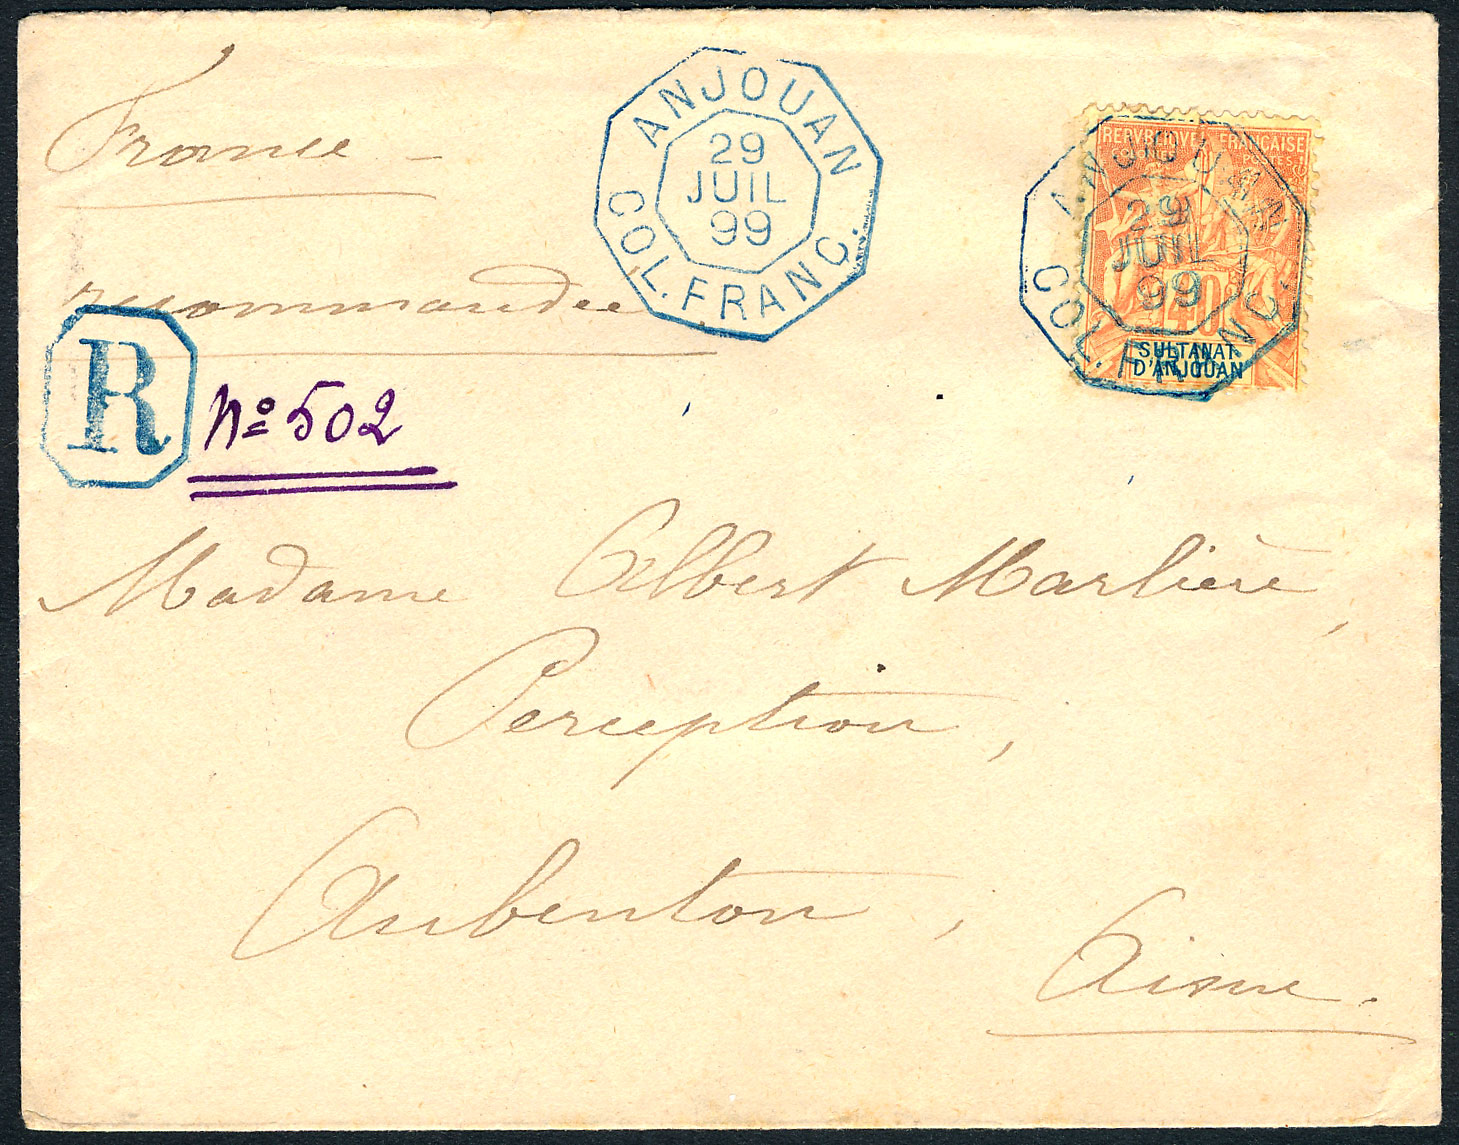 France -
recommandée
ANJOUAN
29
JUIL
99
COL. FRANC.
REPVBLIQVE FRANÇAISE
POSTES
ANJOUAN
29
JUIL
99
COL. FRANC.
40
SULTANAT
D'ANJOUAN
R
No 502
Madame Albert Marlière,
Perception,
Aubenton,
Aisne.